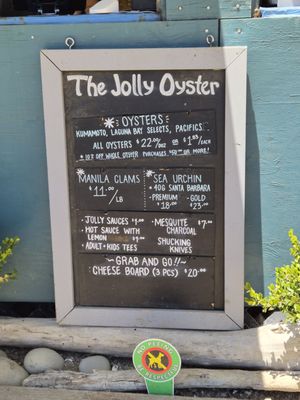 The Jolly Oyster
OYSTERS
KUMAMOTO, LAGUNA BAY SELECTS, PACIFICS
ALL OYSTERS $22.00/DOZ OR $1.85/EACH
* 10% OFF WHOLE OYSTER PURCHASES $50.00 OR MORE!
MANILA CLAMS
$11.00/LB
SEA URCHIN
40G SANTA BARBARA
PREMIUM $18.00
GOLD $23.00
- JOLLY SAUCES $1.00
- HOT SAUCE WITH
LEMON $1.00
- ADULT + KIDS TEES
- MESQUITE $7.00
CHARCOAL
SHUCKING
KNIVES
~GRAB AND GO!!~
- CHEESE BOARD (3 PCS) $20.00
NO PEEING
BE RESPECTFUL